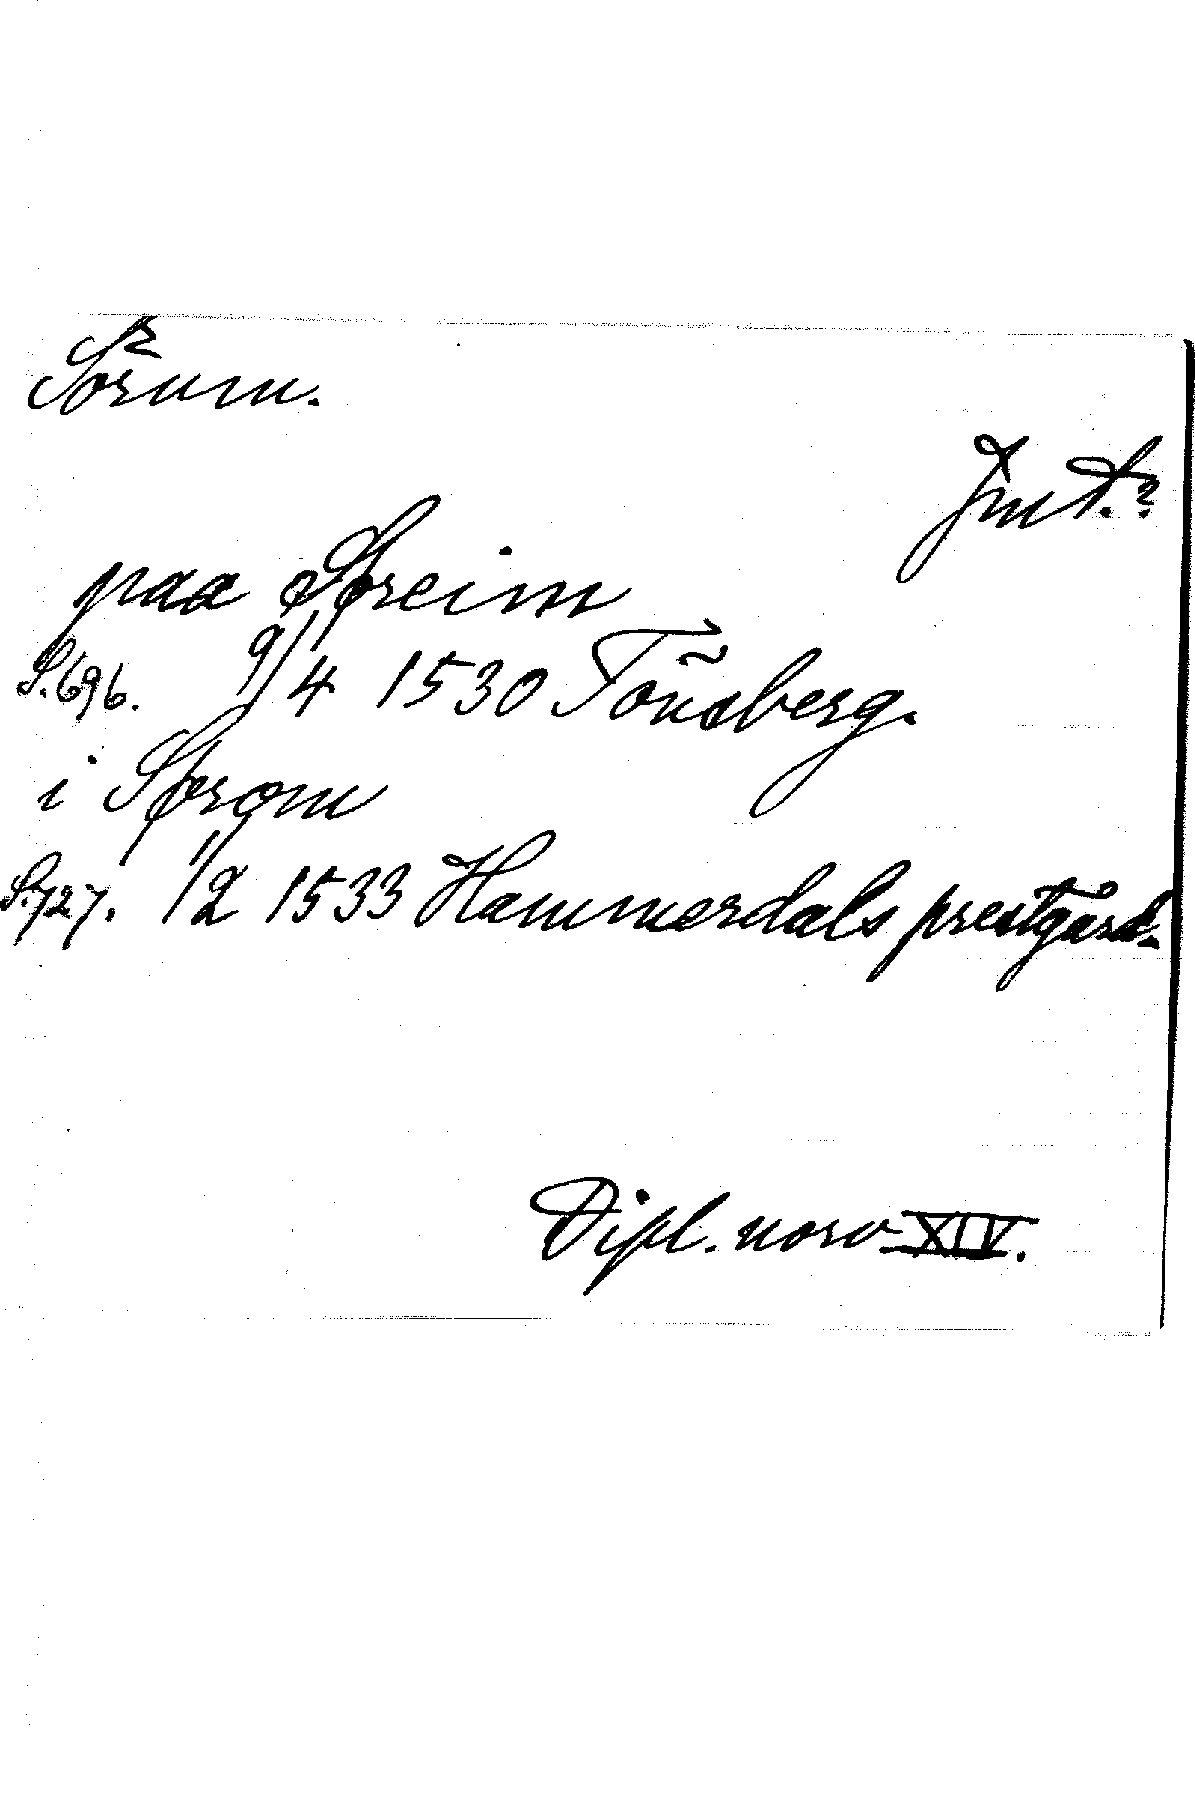 Sörum.
Jmt.?
paa Søreim
S. 696. 9/4 1530 Tönsberg.
i Sørom
S. 727. 11/2 1533 Hammerdals prestgård.
Dipl. norv XIV.